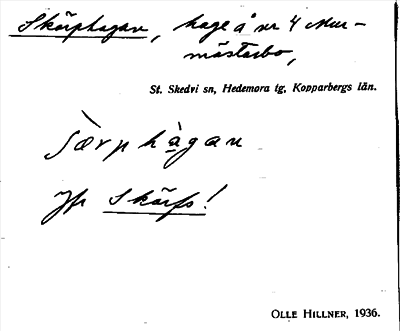 Skörphagen, hage å nr 4 Mur-
mästarbo,
St. Skedvi sn, Hedemora tg, Kopparbergs län.
Særphàgan
Jfr Skärfs!
OLLE HILLNER, 1936.